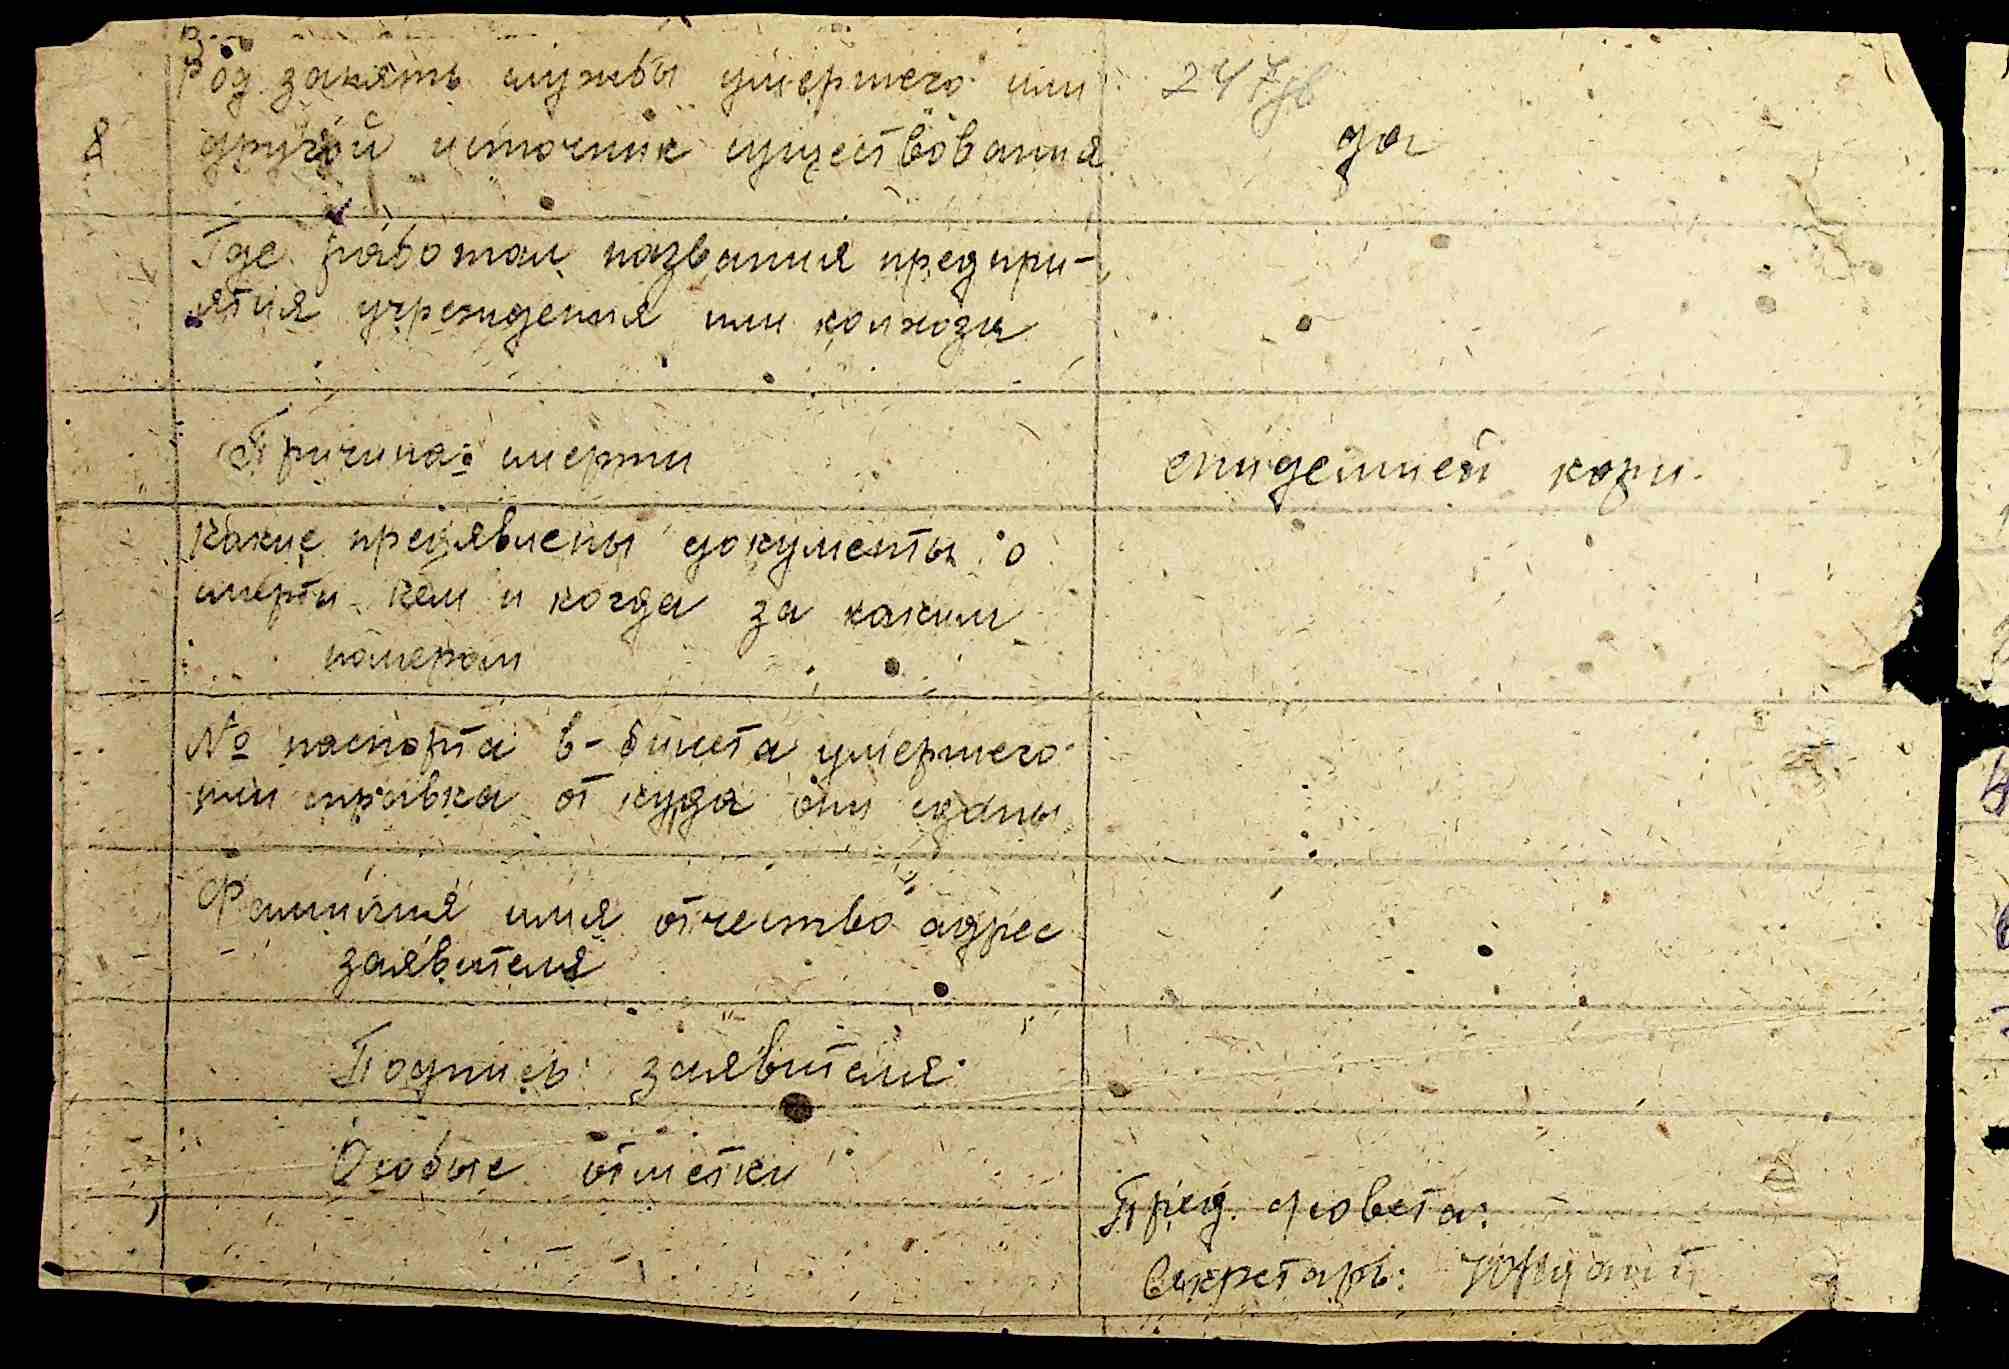 Род занять службы умершего или
247
8 другой источник существования да
Где работал названия предпри-
ятия учреждения или колхоза
Причина смерти епидемией кори.
Какие предявлены документы о
смерти кем и когда за каким
номером
№ паспорта в-билета умершего
или справка от куда они сданы
Фамилия имя отчество адрес
заявителя
Подпись заявителя
Особые отметки
Пред. с/совета:
Секретарь: